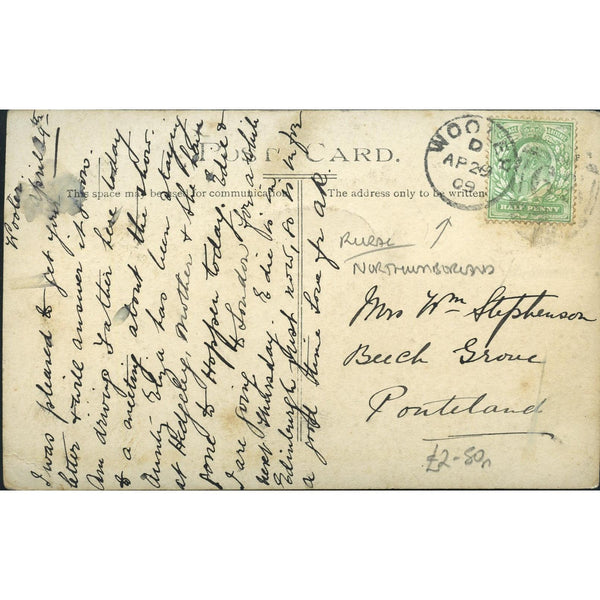 POST CARD.
This space may be used for communication
The address only to be written
WOOLER
D
AP 29
09
HALF PENNY
Wooler.
April 29th
I was pleased to get yr
letter & will answer it soon.
Am driving Father here today
to a meeting about the show.
Aunty Eliza has been staying
at Hegeley, Mother & she have
gone to Hoppen today. Edie &
I are going to London for a while
next Thursday. Edie is in
Edinburgh just now, so in for
a good time Love fr AR.
RURAL
NORTHUMBERLAND
Mrs Wm Stephenson
Beech Grove
Ponteland
£2-50